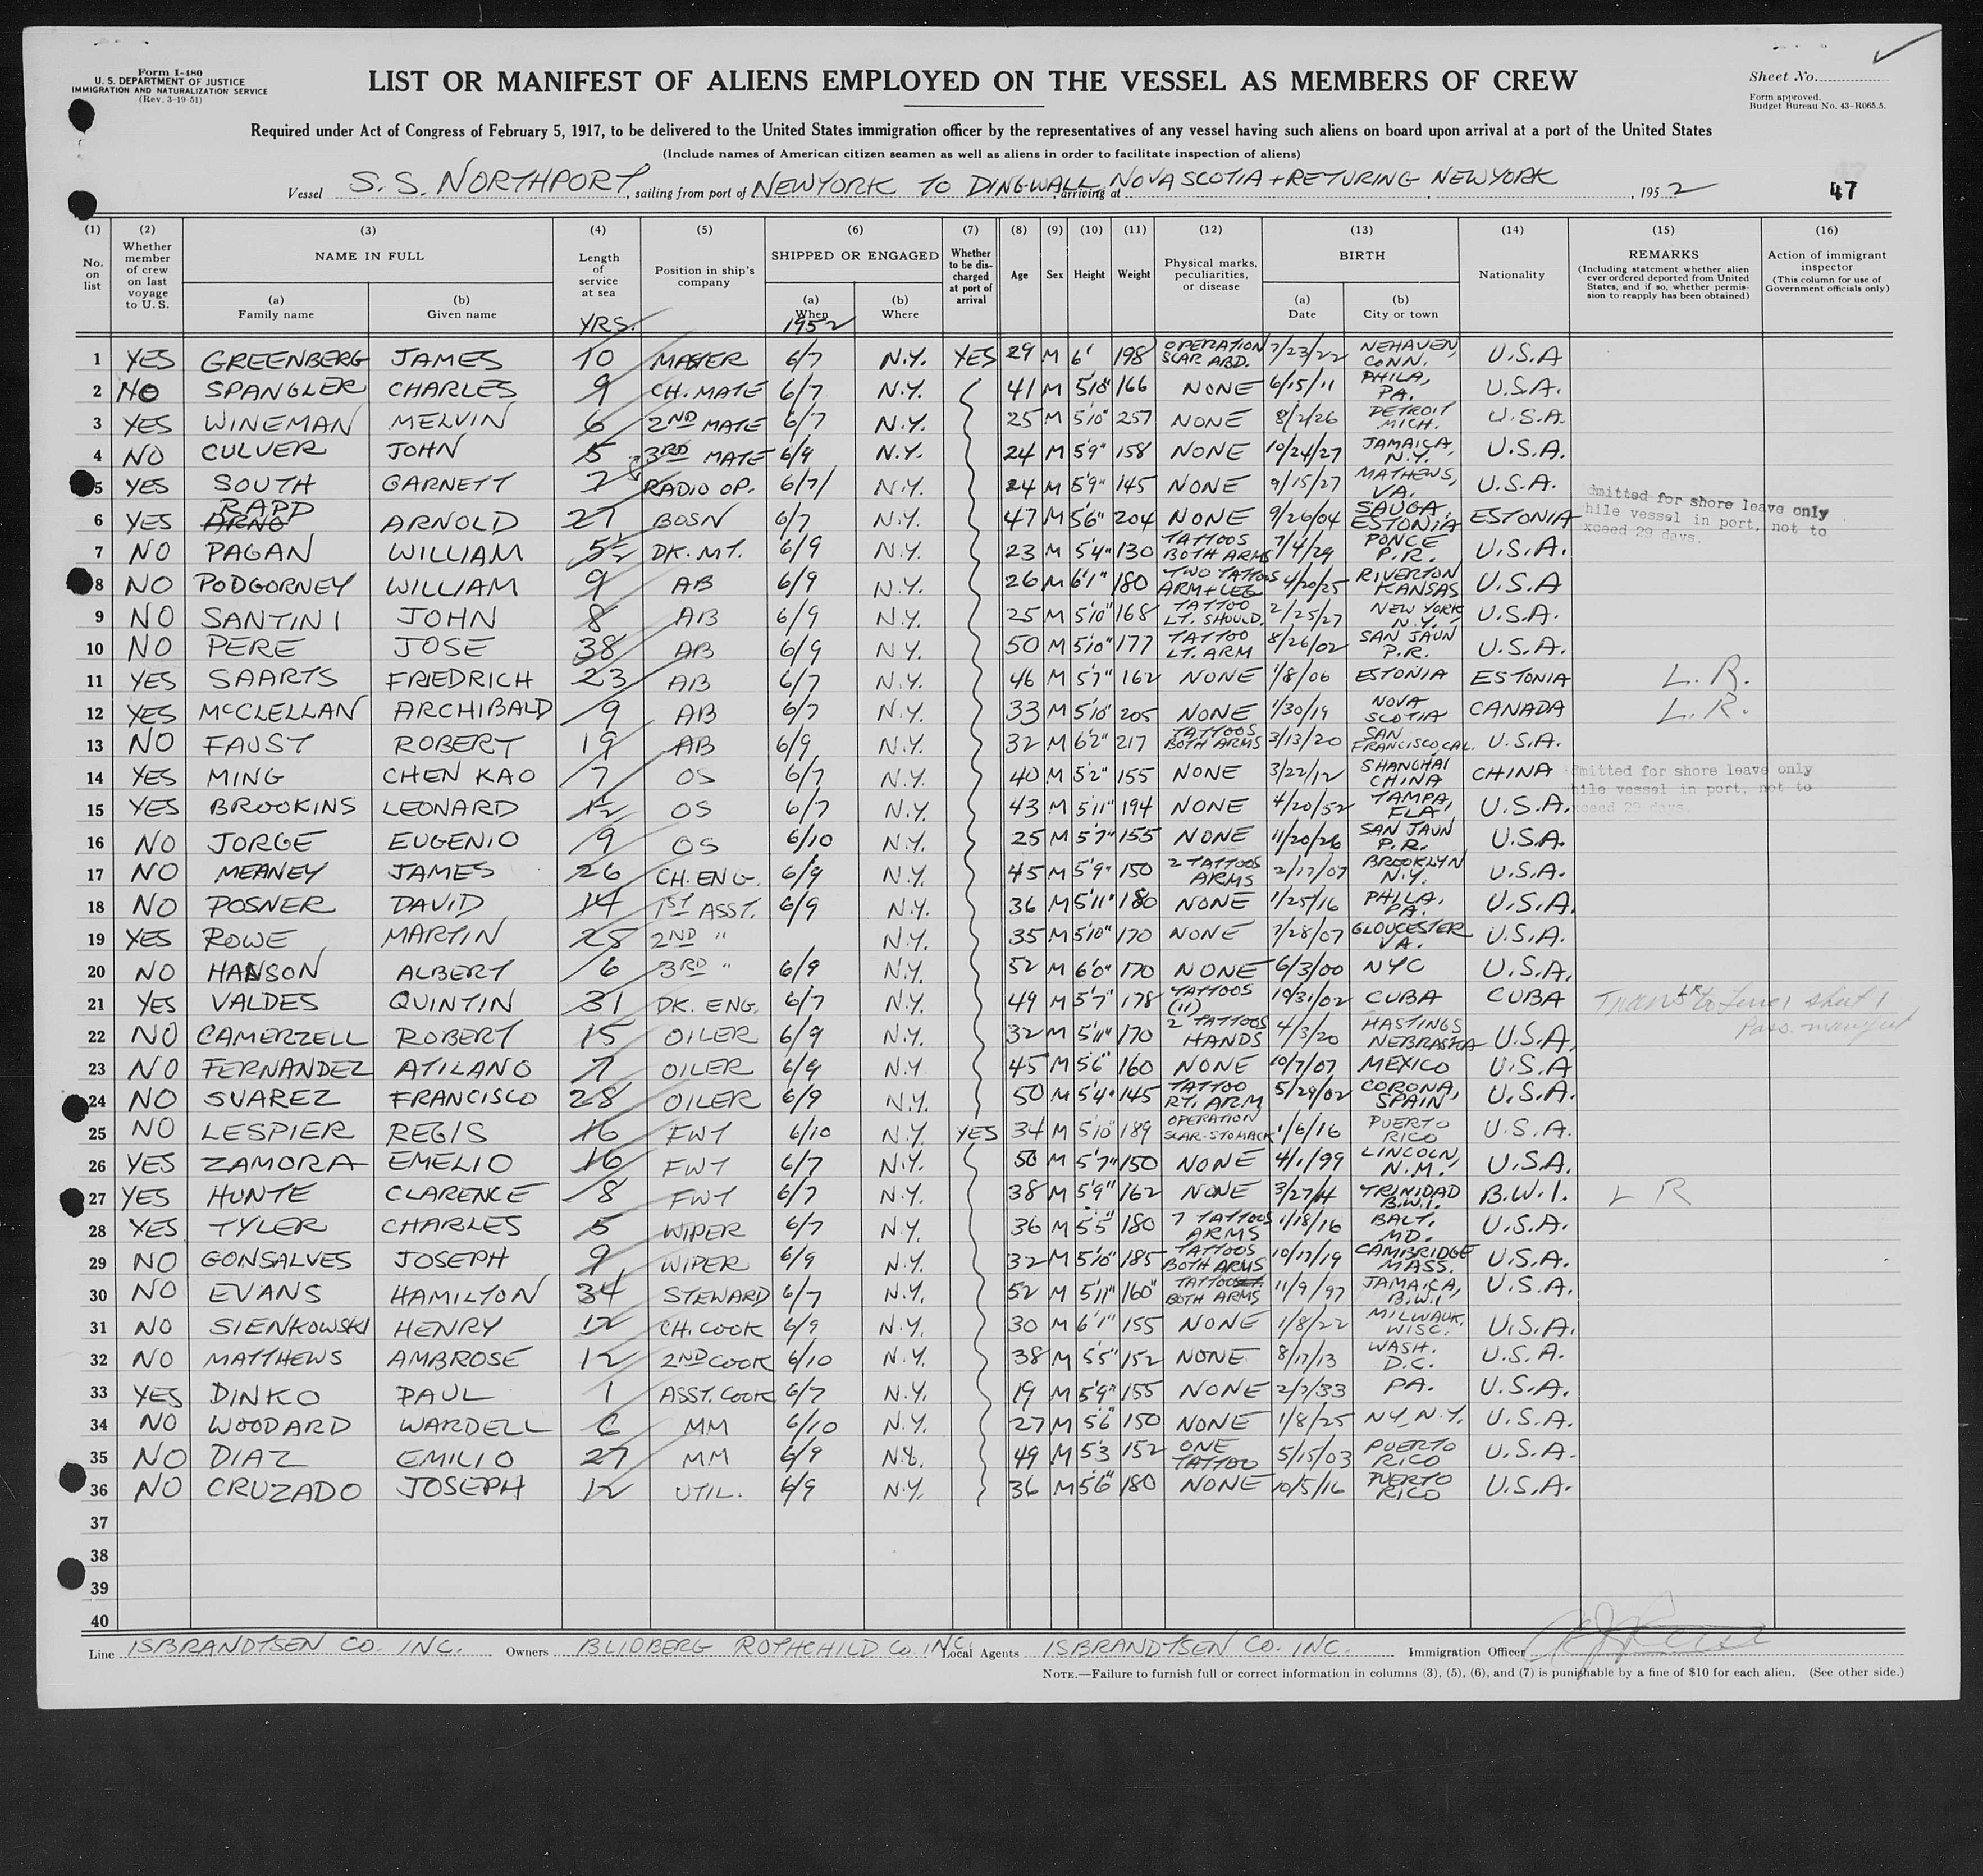 Form I-480
U. S. DEPARTMENT OF JUSTICE
IMMIGRATION AND NATURALIZATION SERVICE
(Rev. 3-19-51)
LIST OR MANIFEST OF ALIENS EMPLOYED ON THE VESSEL AS MEMBERS OF CREW
Sheet No.
Form approved.
Budget Bureau No. 43-R065.5.
Required under Act of Congress of February 5, 1917, to be delivered to the United States immigration officer by the representatives of any vessel having such aliens on board upon arrival at a port of the United States
(Include names of American citizen seamen as well as aliens in order to facilitate inspection of aliens)
Vessel S.S. NORTHPORT, sailing from port of NEWYORK TO DINGWALL, arriving at NOVA SCOTIA + RETURING NEWYORK, 1952
47
(1) No. on list
(2) Whether member of crew on last voyage to U. S.
(3) NAME IN FULL (a) Family name (b) Given name
(4) Length of service at sea YRS.
(5) Position in ship's company
(6) SHIPPED OR ENGAGED (a) When 1952 (b) Where
(7) Whether to be discharged at port of arrival
(8) Age
(9) Sex
(10) Height
(11) Weight
(12) Physical marks, peculiarities, or disease
(13) BIRTH (a) Date (b) City or town
(14) Nationality
(15) REMARKS (Including statement whether alien ever ordered deported from United States, and if so, whether permission to reapply has been obtained)
(16) Action of immigrant inspector (This column for use of Government officials only)
1 YES GREENBERG JAMES 10 MASTER 6/7 N.Y. YES 29 M 6' 198 OPERATION SCAR ABD. 7/23/22 NEHAVEN, CONN. U.S.A
2 NO SPANGLER CHARLES 9 CH. MATE 6/7 N.Y. 41 M 5'10" 166 NONE 6/15/11 PHILA, PA. U.S.A.
3 YES WINEMAN MELVIN 6 2ND MATE 6/7 N.Y. 25 M 5'10" 257 NONE 8/2/26 DETROIT MICH. U.S.A.
4 NO CULVER JOHN 5 3RD MATE 6/9 N.Y. 24 M 5'9" 158 NONE 10/24/27 JAMAICA, N.Y. U.S.A.
5 YES SOUTH GARNETT 7 RADIO OP. 6/7/ N.Y. 24 M 5'9" 145 NONE 9/15/27 MATHEWS, VA. U.S.A.
6 YES ARNO RAPP ARNOLD 27 BOSN 6/7 N.Y. 47 M 5'6" 204 NONE 9/26/04 SAUGA, ESTONIA ESTONIA dmitted for shore leave only hile vessel in port, not to xceed 29 days.
7 NO PAGAN WILLIAM 5½ DK. MT. 6/9 N.Y. 23 M 5'4" 130 TATTOOS BOTH ARMS 7/4/29 PONCE P.R. U.S.A.
8 NO PODGORNEY WILLIAM 9 AB 6/9 N.Y. 26 M 6'1" 180 TWO TATTOOS ARM + LEG 4/20/25 RIVERTON KANSAS U.S.A
9 NO SANTINI JOHN 8 AB 6/9 N.Y. 25 M 5'10" 168 TATTOO LT. SHOULD. 2/25/27 NEW YORK N.Y. U.S.A.
10 NO PERE JOSE 38 AB 6/9 N.Y. 50 M 5'10" 177 TATTOO LT. ARM 8/26/02 SAN JAUN P.R. U.S.A.
11 YES SAARTS FRIEDRICH 23 AB 6/7 N.Y. 46 M 5'7" 162 NONE 1/8/06 ESTONIA ESTONIA L.R.
12 YES McCLELLAN ARCHIBALD 9 AB 6/7 N.Y. 33 M 5'10" 205 NONE 1/30/19 NOVA SCOTIA CANADA L.R.
13 NO FAUST ROBERT 19 AB 6/9 N.Y. 32 M 6'2" 217 TATTOOS BOTH ARMS 3/13/20 SAN FRANCISCO CAL. U.S.A.
14 YES MING CHEN KAO 7 OS 6/7 N.Y. 40 M 5'2" 155 NONE 3/22/12 SHANGHAI CHINA CHINA dmitted for shore leave only hile vessel in port, not to xceed 29 days.
15 YES BROOKINS LEONARD 12 OS 6/7 N.Y. 43 M 5'11" 194 NONE 4/20/52 TAMPA, FLA U.S.A.
16 NO JORGE EUGENIO 9 OS 6/10 N.Y. 25 M 5'7" 155 NONE 11/20/26 SAN JAUN P.R. U.S.A.
17 NO MEANEY JAMES 26 CH. ENG. 6/9 N.Y. 45 M 5'9" 150 2 TATTOOS ARMS 2/17/07 BROOKLYN N.Y. U.S.A.
18 NO POSNER DAVID 14 1ST ASST. 6/9 N.Y. 36 M 5'11" 180 NONE 1/25/16 PHILA, PA. U.S.A.
19 YES ROWE MARTIN 25 2ND " N.Y. 35 M 5'10" 170 NONE 7/28/07 GLOUCESTER VA. U.S.A.
20 NO HANSON ALBERT 6 3RD " 6/9 N.Y. 52 M 6'0" 170 NONE 6/3/00 NYC U.S.A.
21 YES VALDES QUINTIN 31 DK. ENG. 6/7 N.Y. 49 M 5'7" 178 TATTOOS (11) 10/31/02 CUBA CUBA Trans to Line 1 sheet 1 Pass. manifest
22 NO CAMERZELL ROBERT 15 OILER 6/9 N.Y. 32 M 5'11" 170 2 TATTOOS HANDS 4/3/20 HASTINGS NEBRASKA U.S.A.
23 NO FERNANDEZ ATILANO 7 OILER 6/9 N.Y. 45 M 5'6" 160 NONE 10/7/07 MEXICO U.S.A
24 NO SUAREZ FRANCISCO 28 OILER 6/9 N.Y. 50 M 5'4" 145 TATTOO RT. ARM 5/29/02 CORONA, SPAIN U.S.A.
25 NO LESPIER REGIS 16 FWT 6/10 N.Y. YES 34 M 5'10" 189 OPERATION SCAR-STOMACK 1/6/16 PUERTO RICO U.S.A.
26 YES ZAMORA EMELIO 16 FWT 6/7 N.Y. 50 M 5'7" 150 NONE 4/1/99 LINCOLN, N.M. U.S.A.
27 YES HUNTE CLARENCE 8 FWT 6/7 N.Y. 38 M 5'9" 162 NONE 3/27/14 TRINIDAD B.W.I. B.W.I. L R
28 YES TYLER CHARLES 5 WIPER 6/7 N.Y. 36 M 5'5" 180 7 TATTOOS ARMS 1/18/16 BALT. MD. U.S.A.
29 NO GONSALVES JOSEPH 9 WIPER 6/9 N.Y. 32 M 5'10" 185 TATTOOS BOTH ARMS 10/17/19 CAMBRIDGE MASS. U.S.A.
30 NO EVANS HAMILTON 34 STEWARD 6/7 N.Y. 52 M 5'11" 160" TATTOOS BOTH ARMS 11/9/97 JAMAICA, B.W.I U.S.A.
31 NO SIENKOWSKI HENRY 12 CH. COOK 6/9 N.Y. 30 M 6'1" 155 NONE 1/8/22 MILWAUK. WISC. U.S.A.
32 NO MATTHEWS AMBROSE 12 2ND COOK 6/10 N.Y. 38 M 5'5" 152 NONE 8/17/13 WASH. D.C. U.S.A.
33 YES DINKO PAUL 1 ASST. COOK 6/7 N.Y. 19 M 5'9" 155 NONE 2/7/33 PA. U.S.A.
34 NO WOODARD WARDELL 6 MM 6/10 N.Y. 27 M 5'6" 150 NONE 1/8/25 NY, N.Y. U.S.A.
35 NO DIAZ EMILIO 27 MM 6/9 N.Y. 49 M 5'3 152 ONE TATTOO 5/15/03 PUERTO RICO U.S.A.
36 NO CRUZADO JOSEPH 12 UTIL. 6/9 N.Y. 36 M 5'6" 180 NONE 10/5/16 PUERTO RICO U.S.A.
37
38
39
40
Line ISBRANDTSEN CO. INC. Owners BLIDBERG ROTHCHILD Co INC. Local Agents ISBRANDTSEN CO. INC. Immigration Officer
NOTE.—Failure to furnish full or correct information in columns (3), (5), (6), and (7) is punishable by a fine of $10 for each alien. (See other side.)